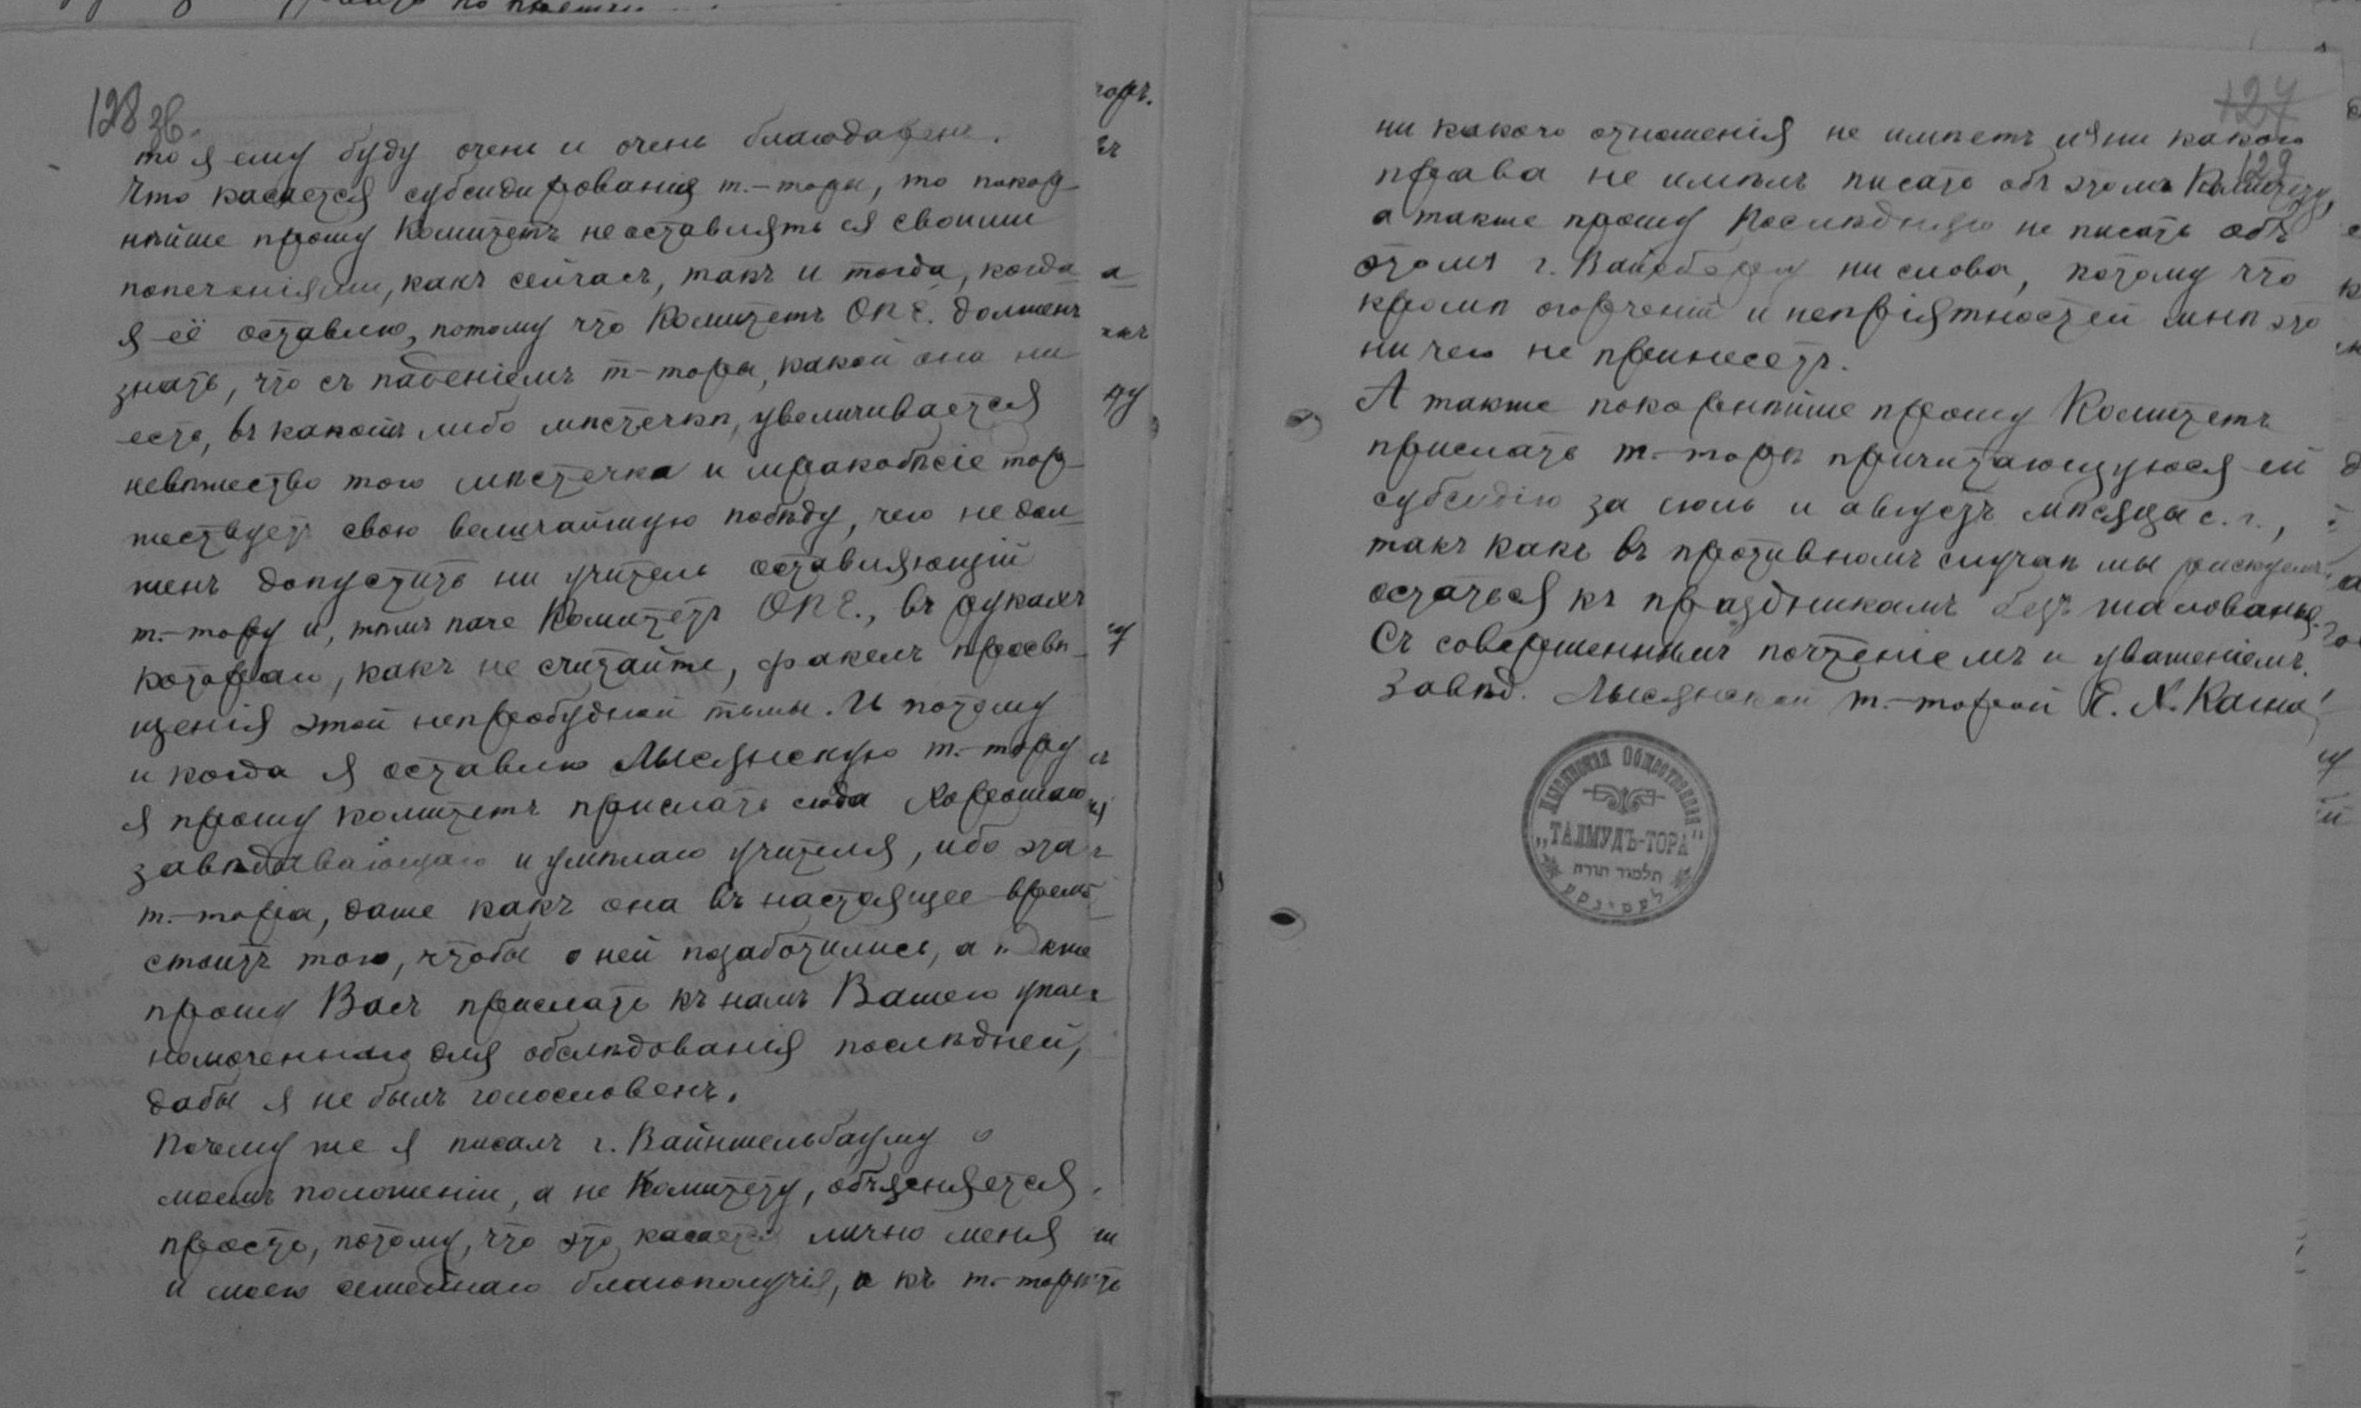 128 об.
то я ему буду очень и очень благодаренъ.
Что касается субсидированія т.-торы, то покор-
нѣйше прошу Комитетъ не оставлять ея своими
попеченіями, какъ сейчасъ, такъ и тогда, когда
я её оставлю, потому что Комитетъ ОПЕ. долженъ
знать, что съ паденіемъ т-торы, какой она ни
есть, въ какомъ либо мѣстечкѣ, увеличивается
невѣжество того мѣстечка и мракобѣсіе тор-
жествуетъ свою величайшую побѣду, чего не дол-
женъ допустить ни учитель оставляющій
т.-тору и, тѣмъ паче Комитетъ ОПЕ., въ рукахъ
котораго, какъ не считайте, факелъ просвѣ-
щенія этой непробудной тьмы. И потому
и когда я оставлю Лысянскую т.-тору
я прошу комитетъ прислать сюда хорошаго
завѣдывающаго и умѣлаго учителя, ибо эта
т.-тора, даже какъ она въ настоящее время
стоитъ того, чтобы о ней позаботились, а также
прошу Васъ прислать къ намъ Вашего упол-
номоченнаго для обслѣдованія послѣдней,
дабы я не былъ голословенъ.
Почему же я писалъ г. Вайншельбауму о
моемъ положеніи, а не Комитету, объясняется
просто, потому, что это касается лично меня
и моего семейнаго благополучія, а къ т.-торѣ
127
129
ни какого отношенія не имѣетъ и я ни какого
права не имѣлъ писать объ этомъ Комитету,
а также прошу Послѣднюю не писать объ
этомъ г. ни слова, потому что
кромѣ огорченій и непріятностей мнѣ это
ни чего не принесетъ.
А также покорнѣйше прошу Комитетъ
прислать т.-торѣ причитающуюся ей
субсидію за іюль и августъ мѣсяцы с. г.,
такъ какъ въ противномъ случаѣ мы рискуемъ
остаться къ праздникамъ безъ жалованья.
Съ совершеннымъ почтеніемъ и уваженіемъ.
Завѣд. Лысянской т.-торой Е. Х. Кагна
Лысянская Общественная
"ТАЛМУДЪ-ТОРА"
תלמוד תורה